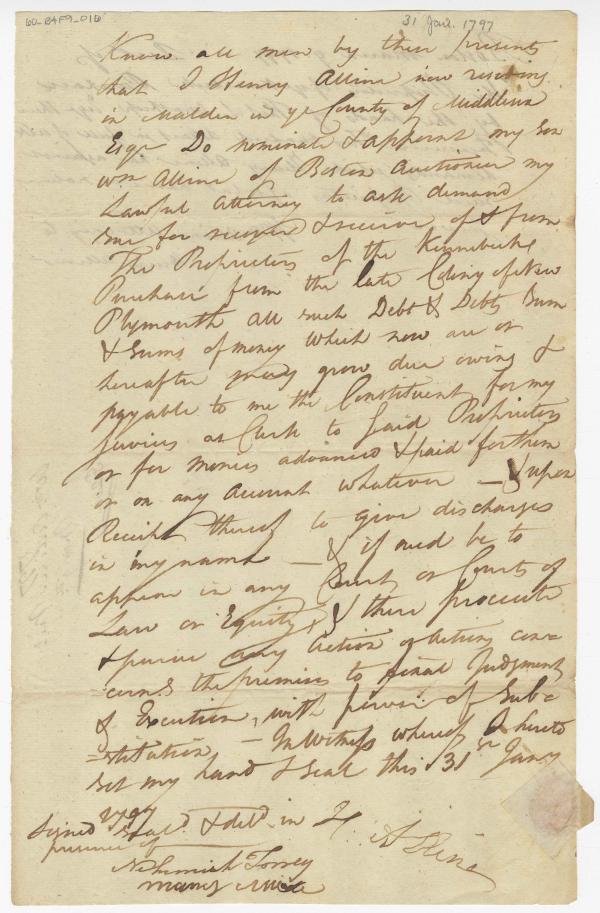 31 Jan. 1797
Know all men by these presents
that I Henry Alline now residing
in Malden in ye County of Middlesex
Esqr Do nominate & appoint my Son
Wm Alline of Boston Auctioneer my
Lawful Attorney to ask demand
sue for recover & receive of & from
The Proprietors of the Kennebeck
Purchase from the late Colony of New
Plymouth all such Debt & Debts Sum
& Sums of money which now are or
hereafter may grow due owing &
payable to me the Constituent for my
Services as Clerk to said Proprietors
or for monies advanced & paid for them
or on any account whatever — & upon
Receipt thereof to give discharges
in my name — & if need be to
appear in any Court or Courts of
Law or Equity & there prosecute
& pursue any Action or Actions con=
=cerng the premises to final Judgment
& Execution, with power of Sub=
=stitution — In Witness whereof I hereto
set my hand & seal this 31st Jany
1797
Signed Seald & deld in
presence of
H Alline
Nehemiah Torrey